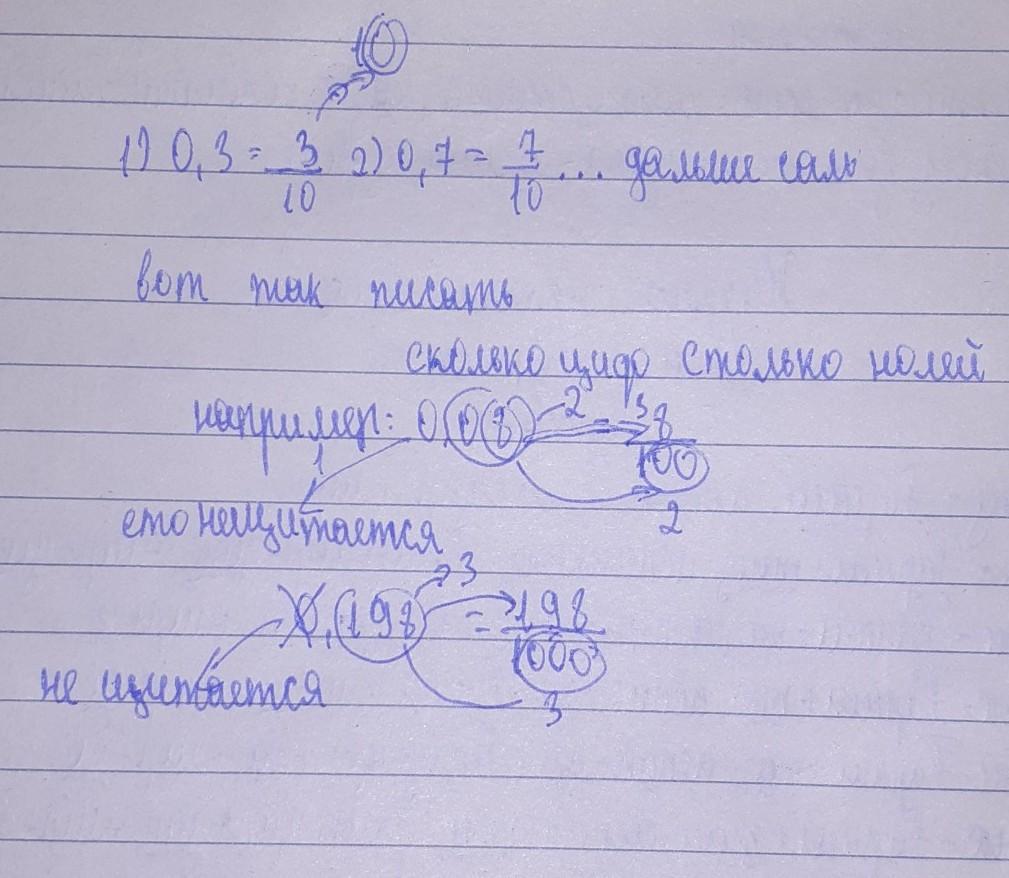 10
1) 0,3 = 3/10 2) 0,7 = 7/10 ... дальше самь
вот так писать
сколько цифр столько нолей
например: 0,08 2 = 8/100
1 2
ето нещитается
3
0,198 = 198/1000
не щитается 3